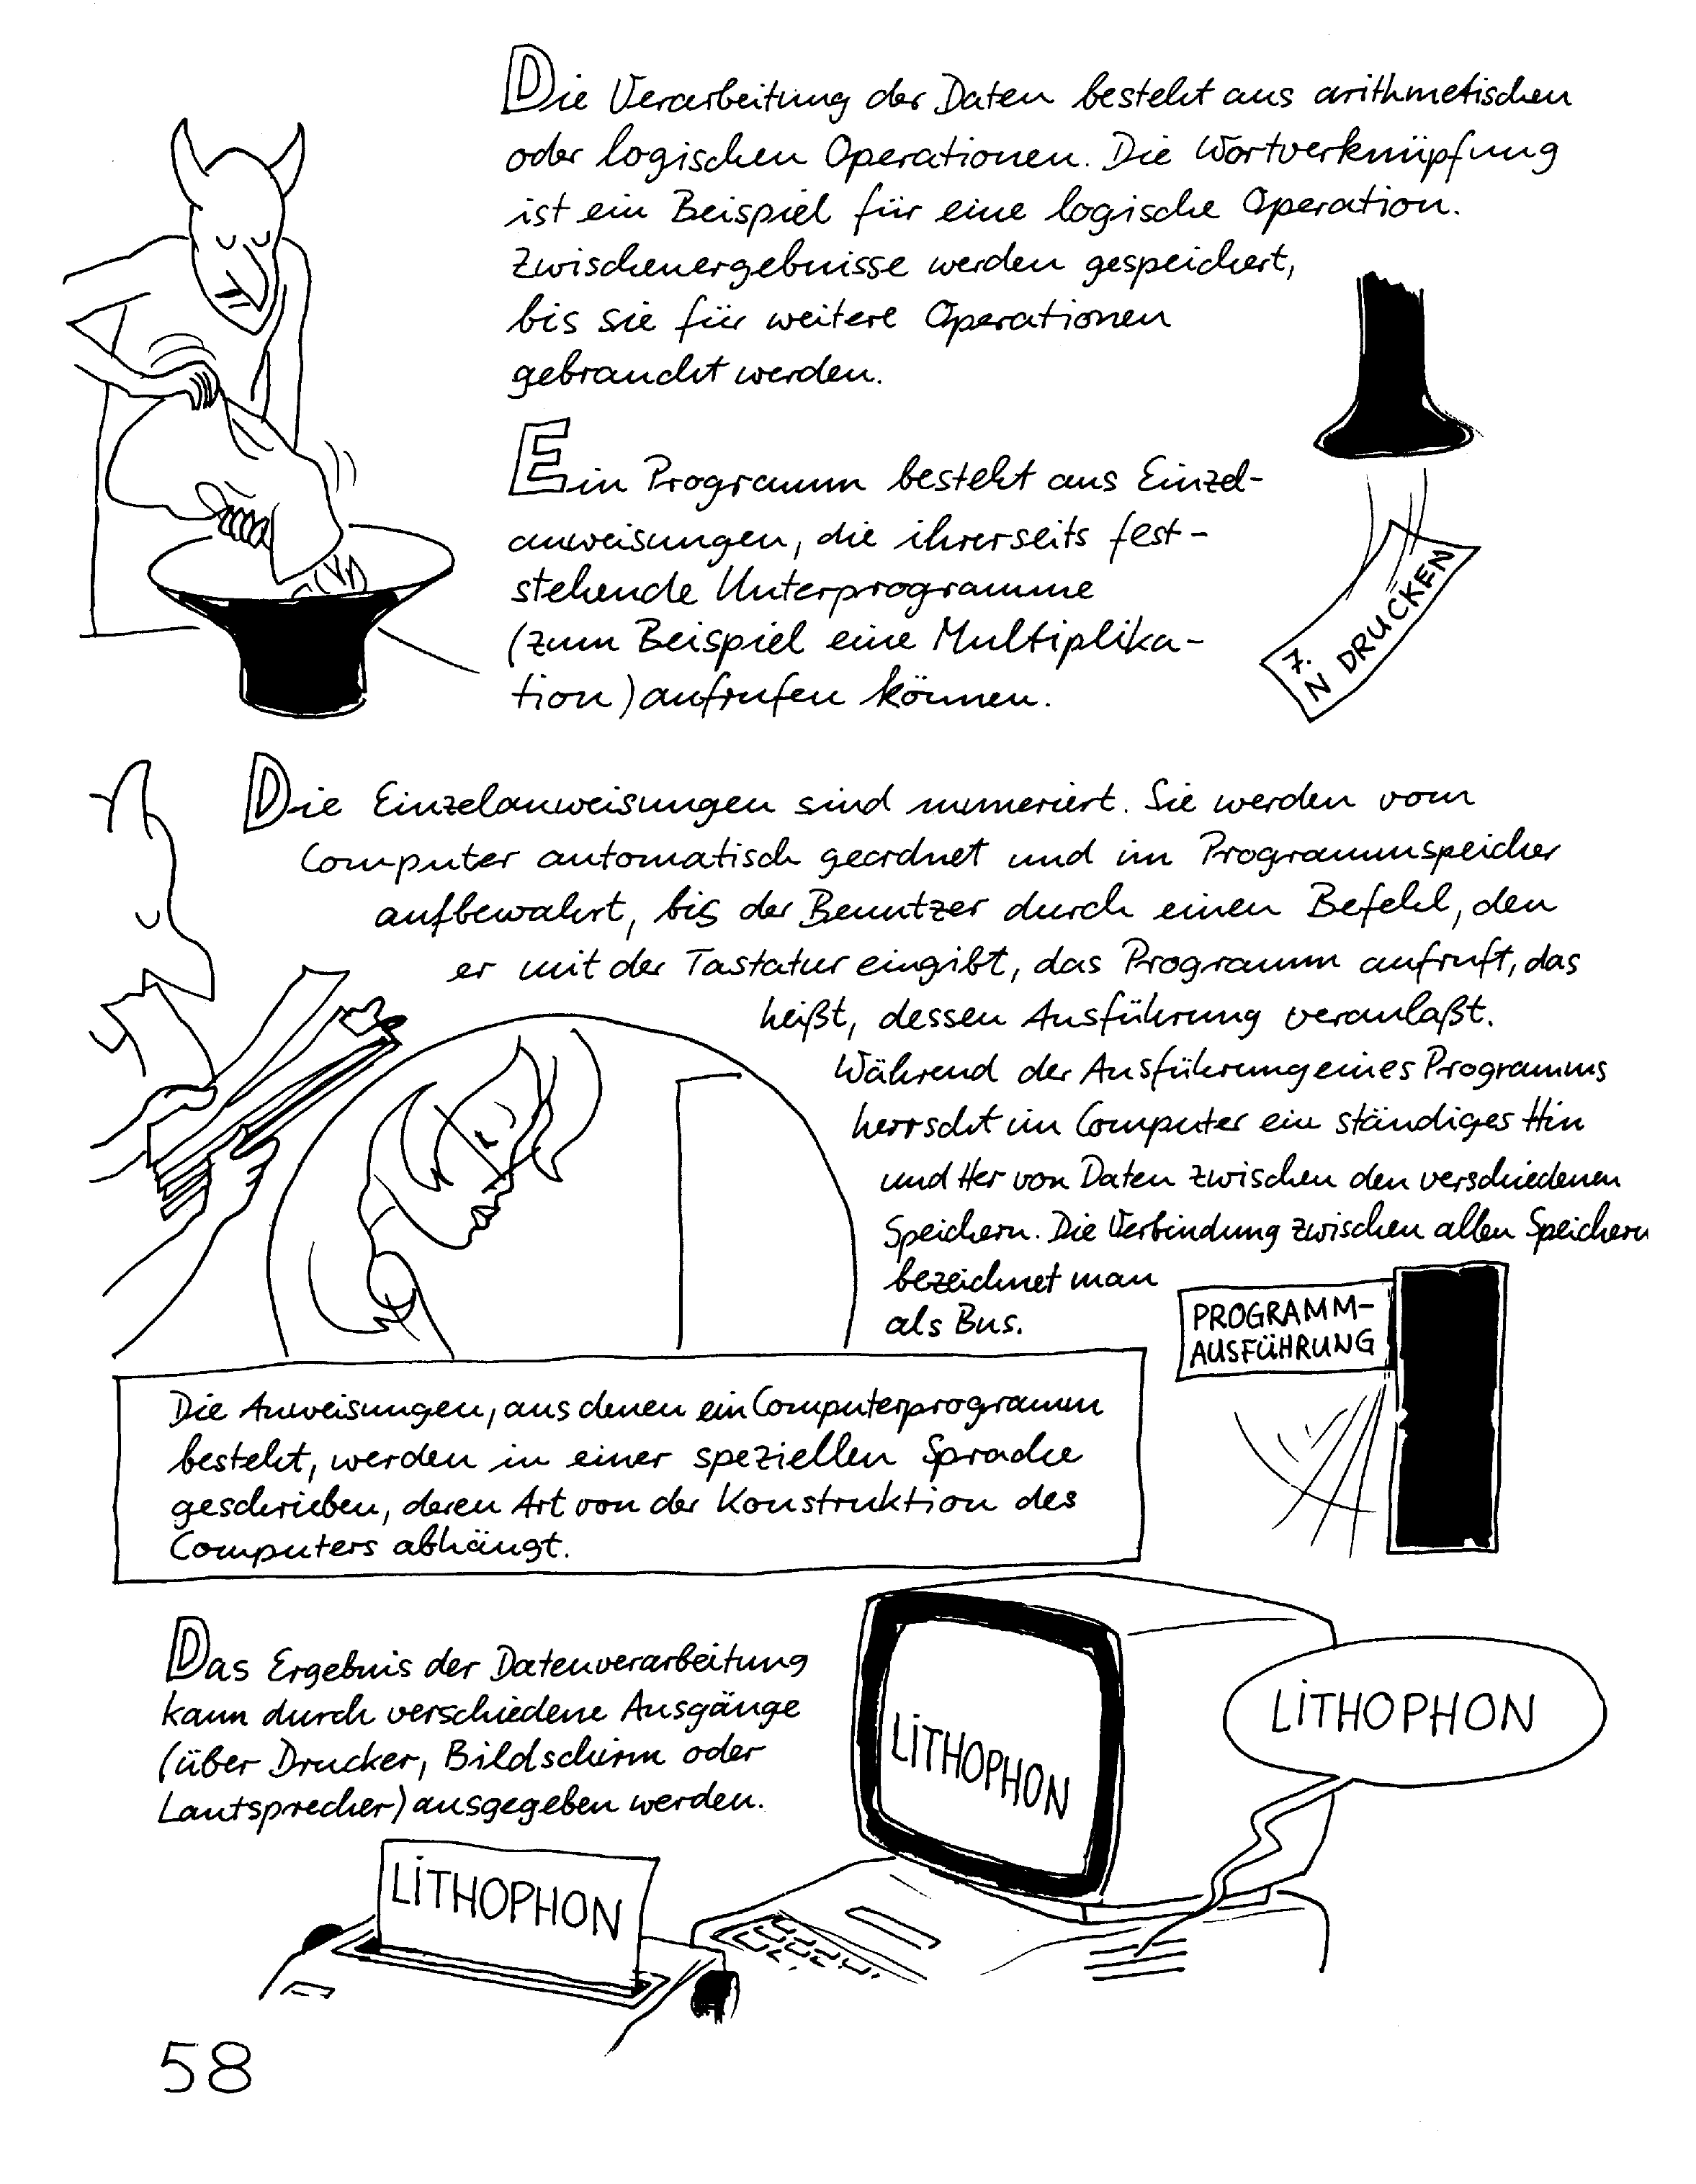 Die Verarbeitung der Daten besteht aus arithmetischen
oder logischen Operationen. Die Wortverknüpfung
ist ein Beispiel für eine logische Operation.
Zwischenergebnisse werden gespeichert,
bis sie für weitere Operationen
gebraucht werden.
Ein Programm besteht aus Einzel-
anweisungen, die ihrerseits fest-
stehende Unterprogramme
(zum Beispiel eine Multiplika-
tion) aufrufen können.
7.
N DRUCKEN
Die Einzelanweisungen sind numeriert. Sie werden vom
Computer automatisch geordnet und im Programmspeicher
aufbewahrt, bis der Benutzer durch einen Befehl, den
er mit der Tastatur eingibt, das Programm aufruft, das
heißt, dessen Ausführung veranlaßt.
Während der Ausführung eines Programms
herrscht im Computer ein ständiges Hin
und Her von Daten zwischen den verschiedenen
Speichern. Die Verbindung zwischen allen Speichern
bezeichnet man
als Bus.
PROGRAMM-
AUSFÜHRUNG
Die Anweisungen, aus denen ein Computerprogramm
besteht, werden in einer speziellen Sprache
geschrieben, deren Art von der Konstruktion des
Computers abhängt.
Das Ergebnis der Datenverarbeitung
kann durch verschiedene Ausgänge
(über Drucker, Bildschirm oder
Lautsprecher) ausgegeben werden.
LiTHOPHON
LiTHOPHON
LiTHOPHON
58